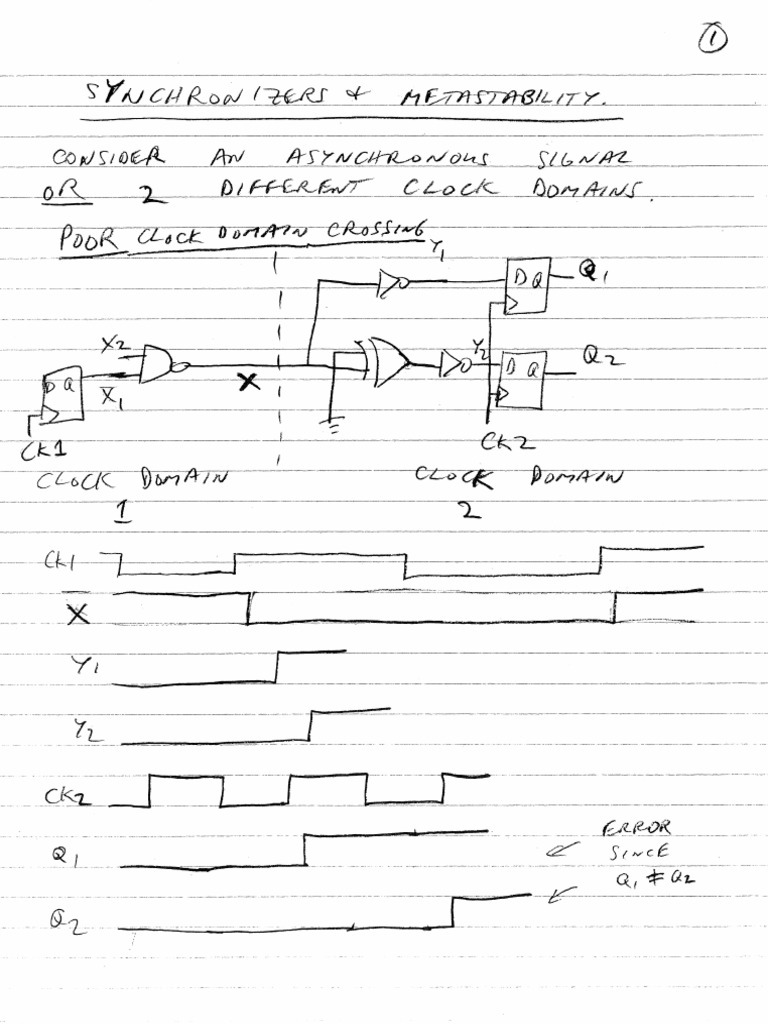 1
SYNCHRONIZERS & METASTABILITY.
CONSIDER AN ASYNCHRONOUS SIGNAL
OR 2 DIFFERENT CLOCK DOMAINS.
POOR CLOCK DOMAIN CROSSING
Y1
D Q Q1
X2
Y2
D Q Q2
D Q
X1
X
CK1
CK2
CLOCK DOMAIN
1
CLOCK DOMAIN
2
CK1
X
Y1
Y2
CK2
Q1
ERROR
SINCE
Q1 ≠ Q2
Q2